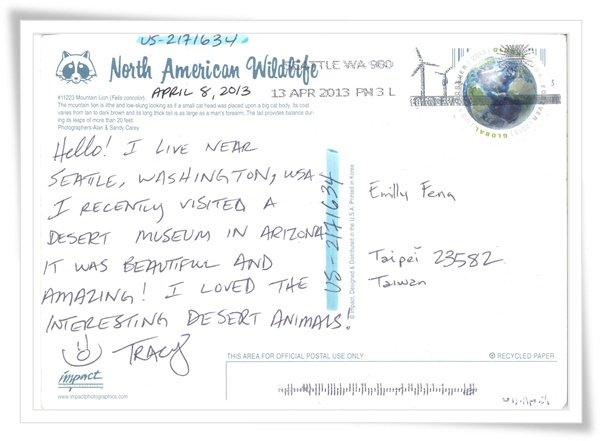 US-2171634
North American Wildlife
SEATTLE WA 980
13 APR 2013 PM 3 L
APRIL 8, 2013
#11223 Mountain Lion (Felis concolor)
The mountain lion is lithe and low-slung looking as if a small cat head was placed upon a big cat body. Its coat
varies from tan to dark brown and its long thick tail is as large as a man's forearm. The tail provides balance dur-
ing its leaps of more than 20 feet.
Photographers-Alan & Sandy Carey
GLOBAL
FOREVER
HELLO! I LIVE NEAR
SEATTLE, WASHINGTON, USA
I RECENTLY VISITED A
DESERT MUSEUM IN ARIZONA.
IT WAS BEAUTIFUL AND
AMAZING! I LOVED THE
INTERESTING DESERT ANIMALS!
TRACY
US-2171634
© Impact, Designed & Distributed in the U.S.A. Printed in Korea
Emilly Feng
Taipei 23582
Taiwan
impact
www.impactphotographics.com
THIS AREA FOR OFFICIAL POSTAL USE ONLY
RECYCLED PAPER